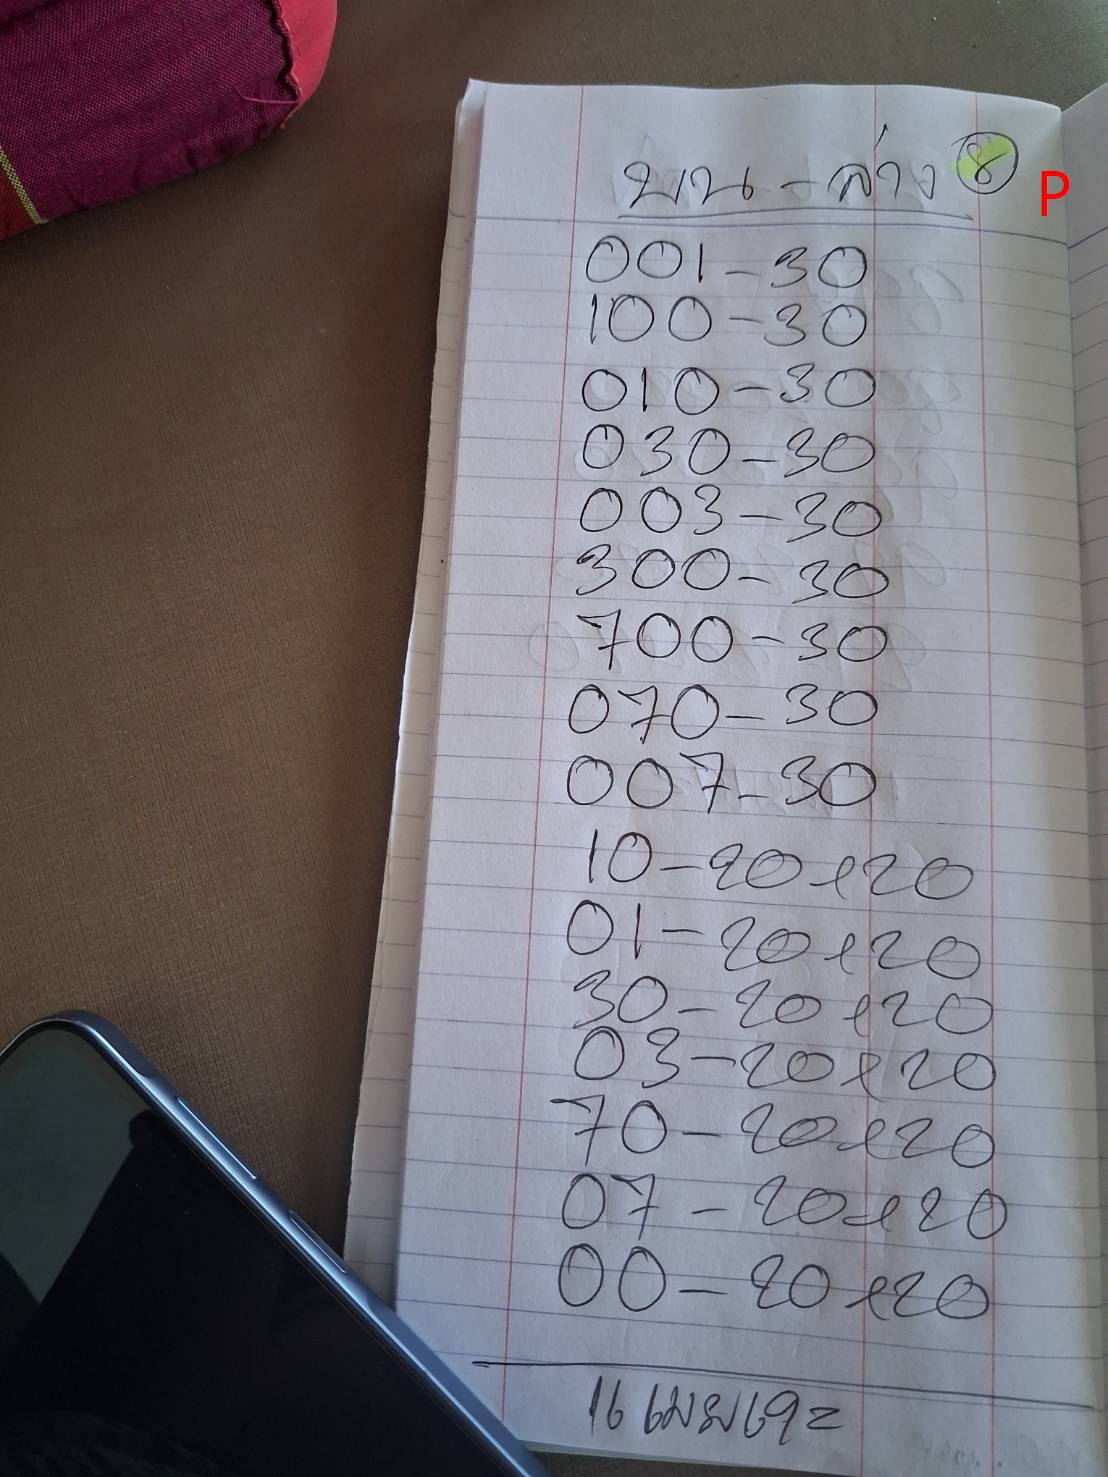 บน - ล่าง 8 P
001-30
100-30
010-30
030-30
003-30
300-30
700-30
070-30
007-30
10-20x20
01-20x20
30-20x20
03-20x20
70-20x20
07-20x20
00-20x20
16 เมย 69=